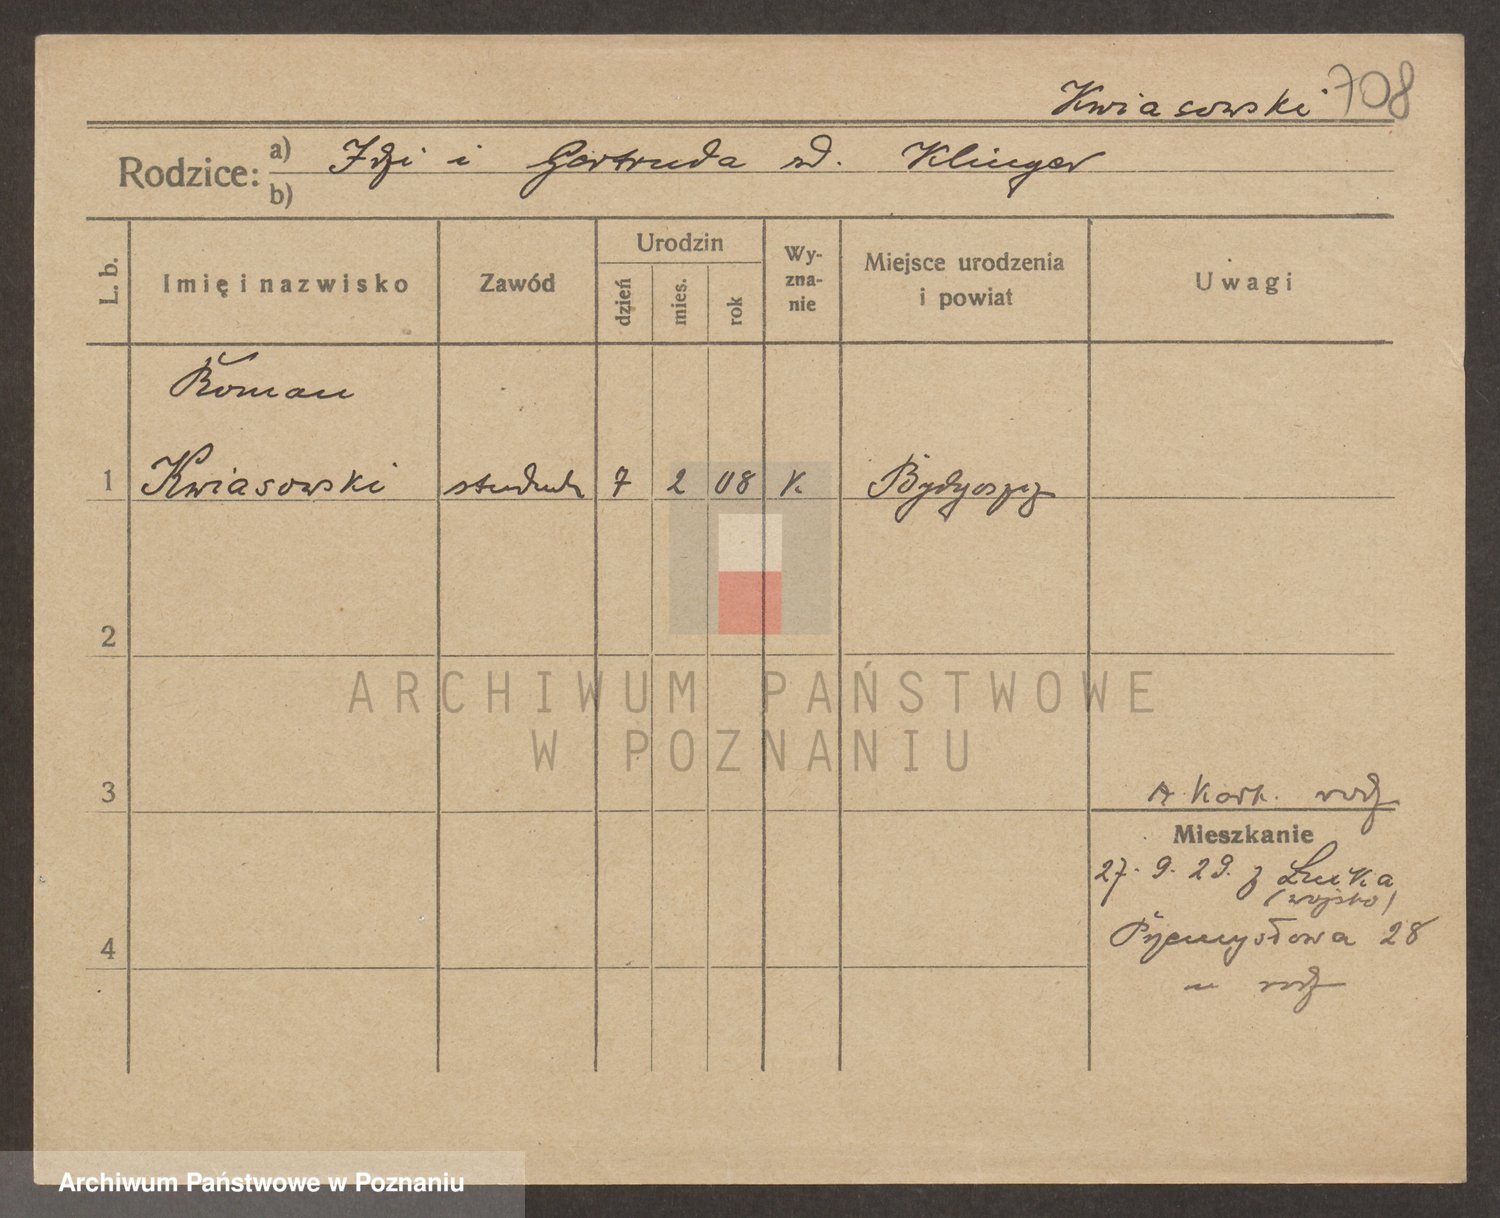 Kwiasowski 708
Rodzice: a) Idzi i Gertruda zd. Klinger
b)
L. b.
Imię i nazwisko
Zawód
Urodzin
dzień
mies.
rok
Wy-
zna-
nie
Miejsce urodzenia
i powiat
Uwagi
Roman
1 Kwiasowski student 7 2 08 k. Bydgoszcz
2
ARCHIWUM PAŃSTWOWE
W POZNANIU
3
Kart. rodz
Mieszkanie
27. 9. 29. z
(wojsko)
4
Przemysłowa 28
u rodz
Archiwum Państwowe w Poznaniu